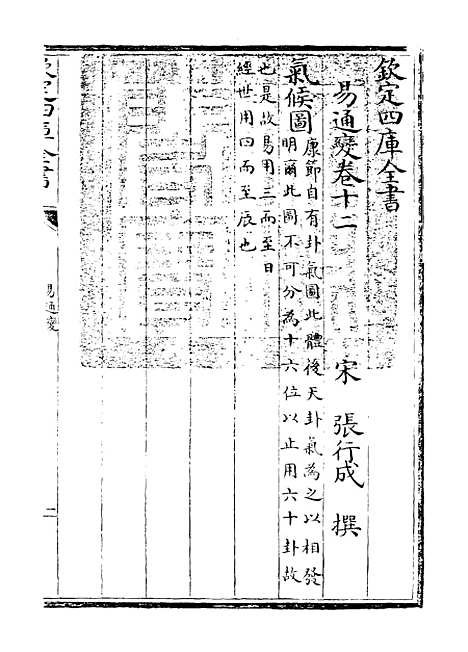 欽定四庫全書
易通變卷十二
宋 張行成 撰
氣候圖
康節自有卦氣圖此體後天卦氣為之以相發
明爾此圖不可分為十六位以止用六十卦故
也是故易用三而至日
經世用四而至辰也
欽定四庫全書
易通變